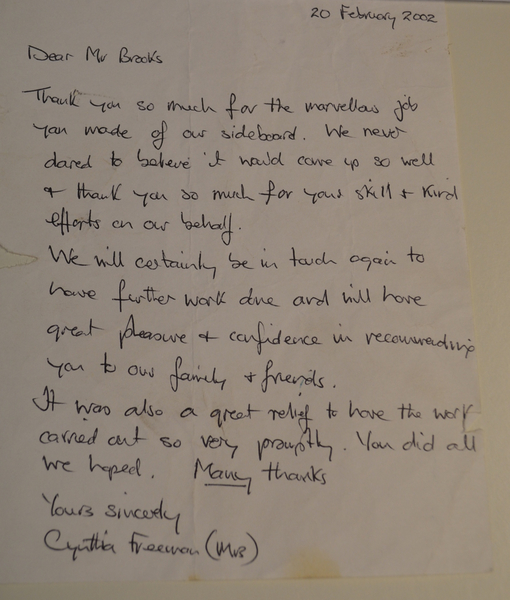 20 February 2002
Dear Mr Brooks
Thank you so much for the marvellous job
you made of our sideboard. We never
dared to believe it would come up so well
+ thank you so much for your skill + kind
efforts on our behalf.
We will certainly be in touch again to
have further work done and will have
great pleasure + confidence in recommending
you to our family + friends.
It was also a great relief to have the work
carried out so very promptly. You did all
we hoped. Many thanks
Yours sincerely
Cynthia Freeman (Mrs)